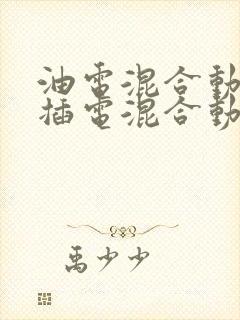 油電混合動
插電混合動
禹少少